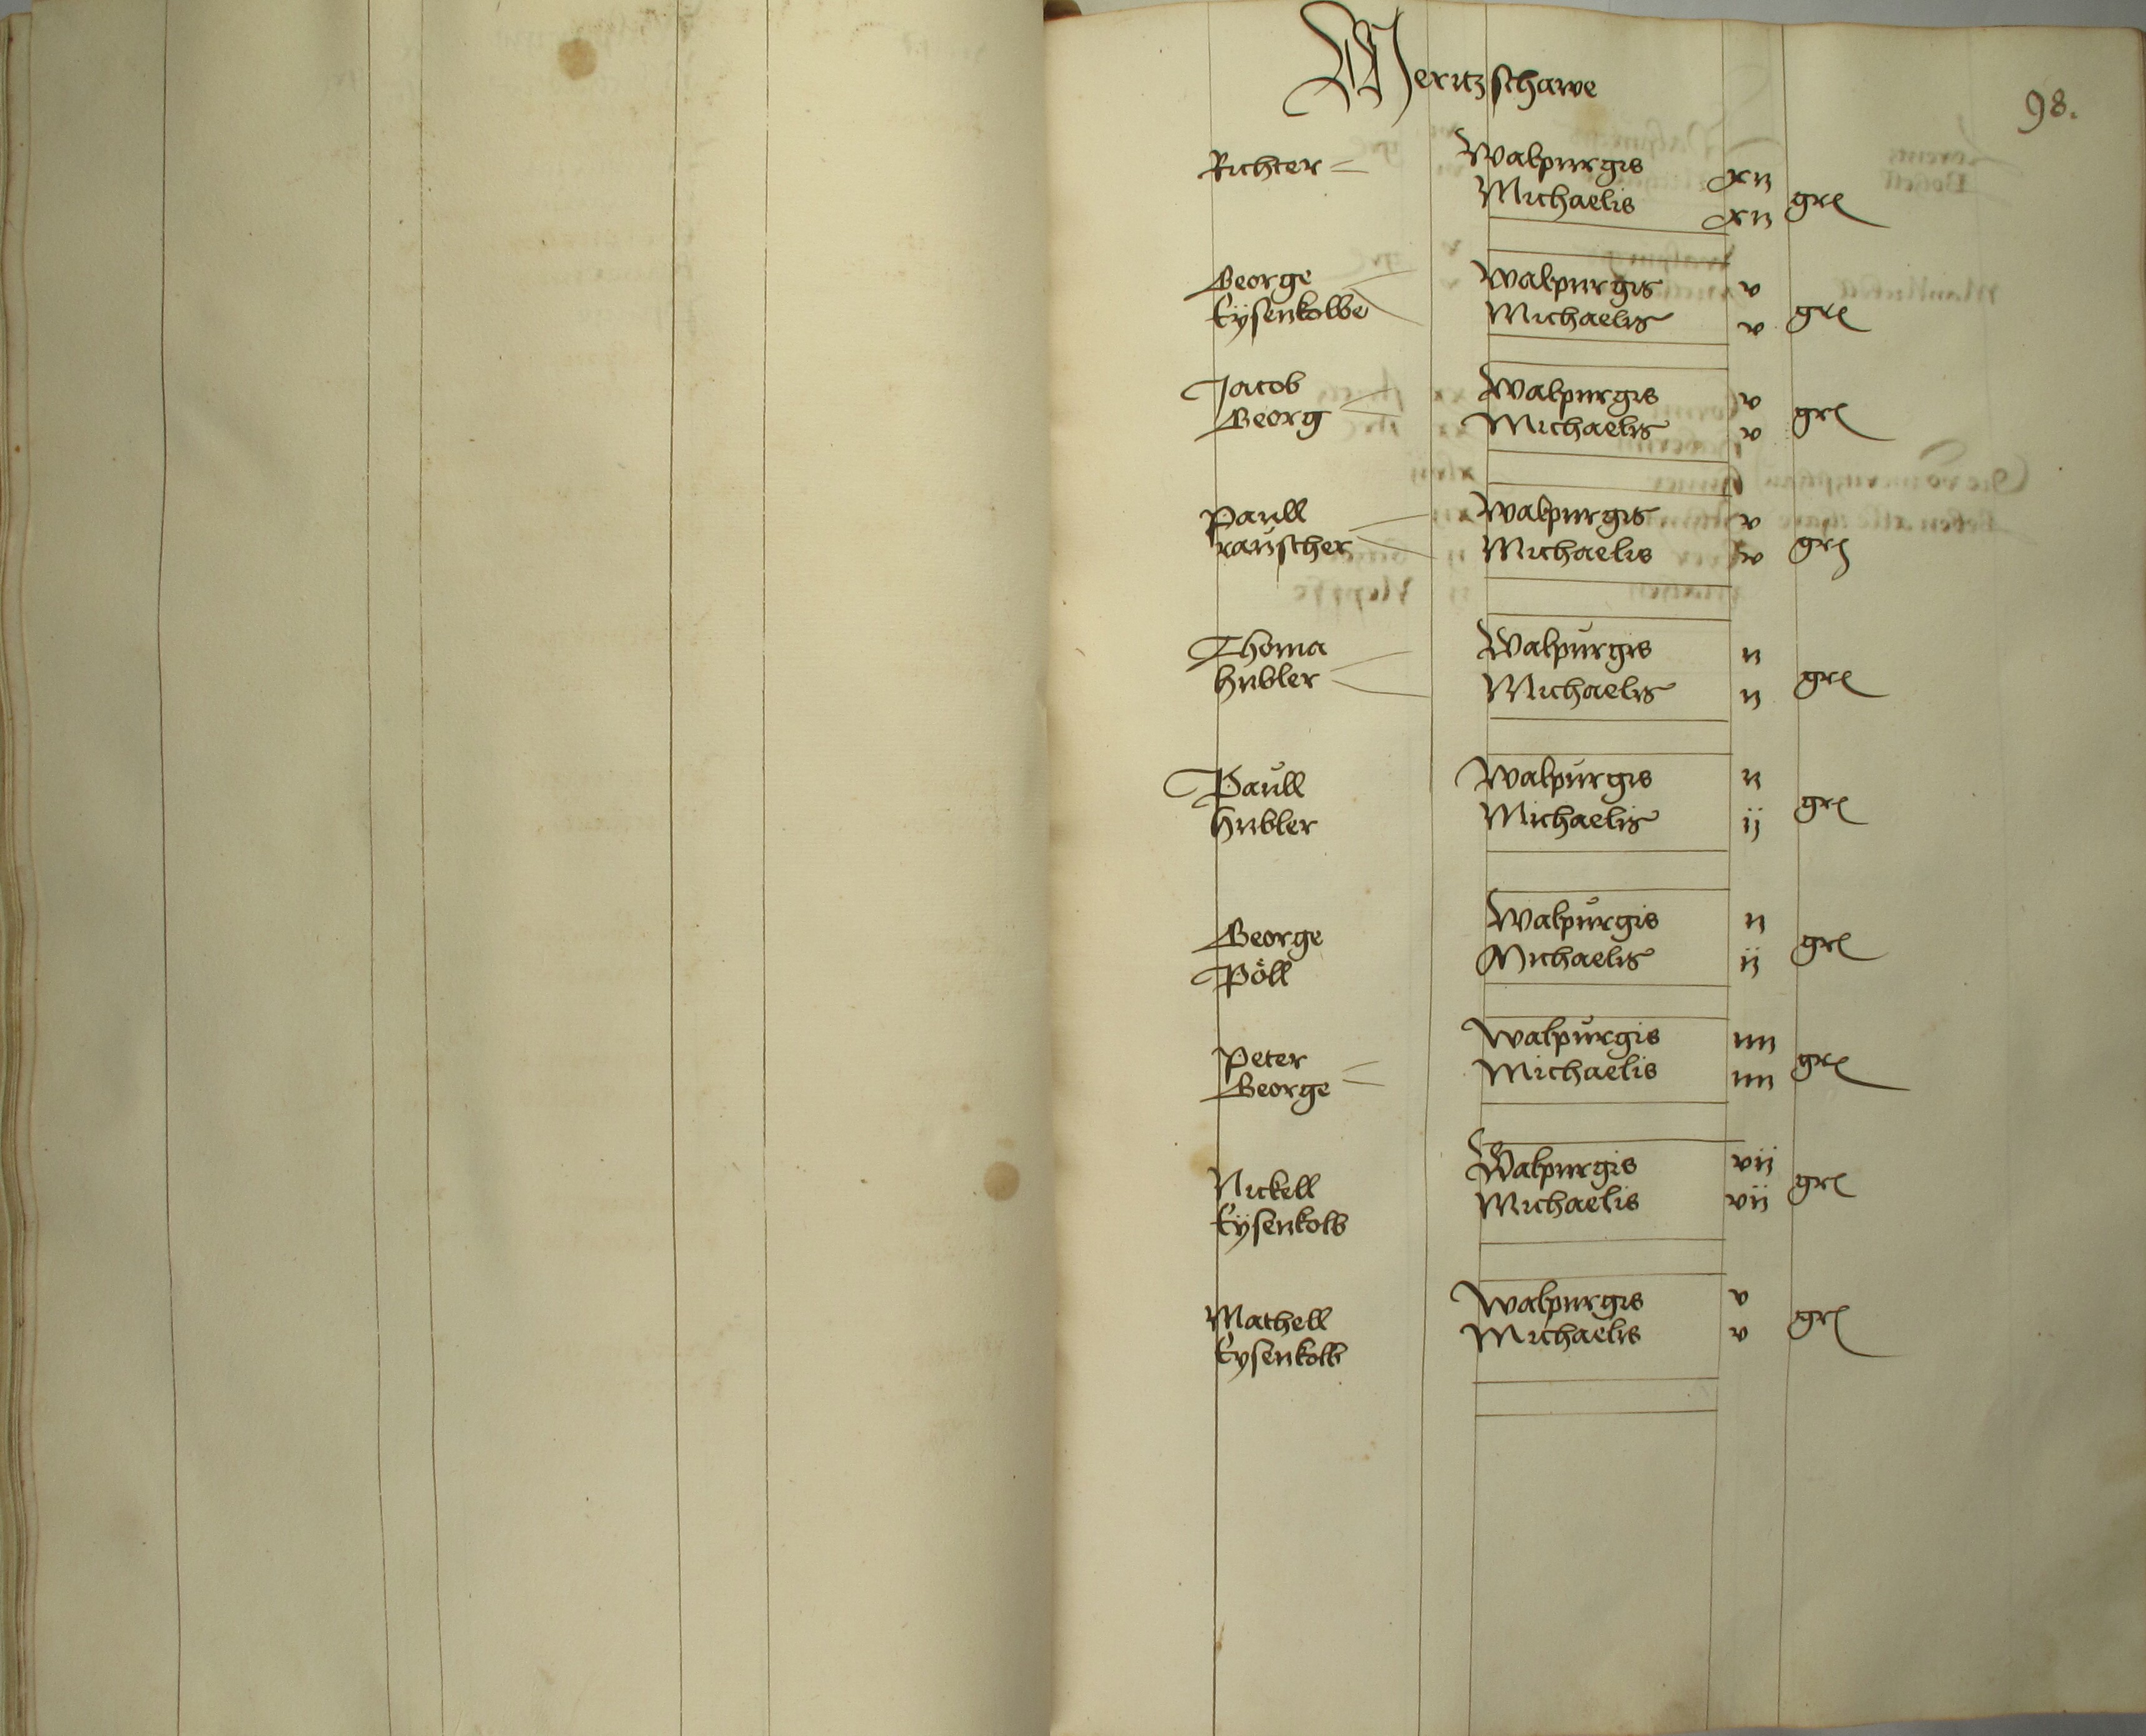 98.
Meritzschawe
Richter Walpurgis xij
Michaelis xij gr
George Walpurgis v
Eÿsenkolbe Michaelis v gr
Jacob Walpurgis v
Georg Michaelis v gr
Paull Walpurgis v
rauscher Michaelis v gr
Thoma Walpurgis ij
hubler Michaelis ij gr
Paull Walpurgis ij
hubler Michaelis ij gr
George Walpurgis ij
Pöll Michaelis ij gr
Peter Walpurgis iiij
George Michaelis iiij gr
Nickell Walpurgis vij
Eÿsenkolb Michaelis vij gr
Mathell Walpurgis v
Eysenkolb Michaelis v gr